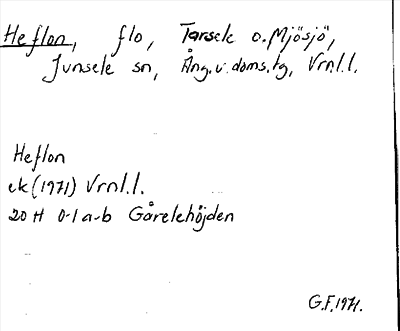 Heflon, flo, Tarsele o. Mjösjö,
Junsele sn, Ång. v. doms. tg, Vrnl.l.
Heflon
ek (1971) Vrnl.l.
20 H 0-1 a-b Gårelehöjden
G.F. 1971.